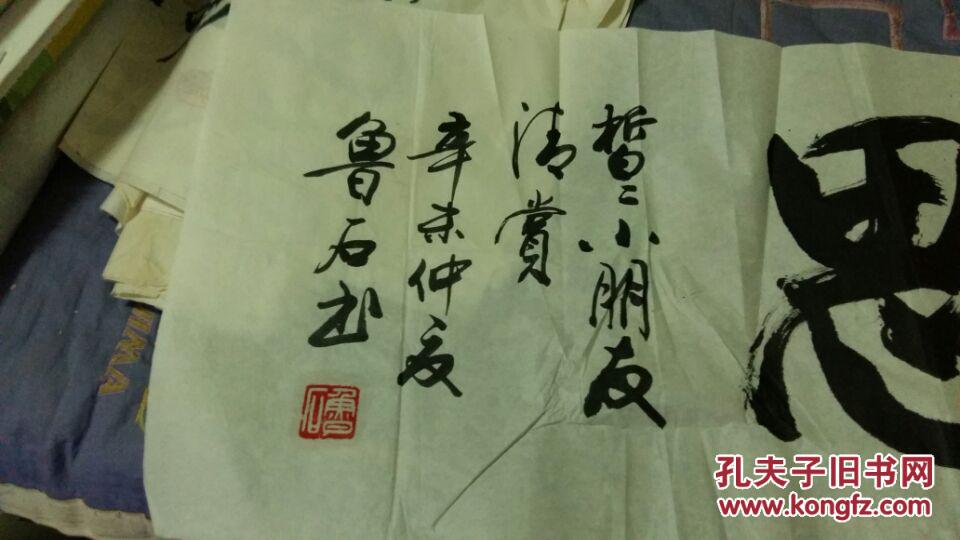 皙〻小朋友
清賞
辛未仲夏
鲁石书
魯石
孔夫子旧书网
www.kongfz.com